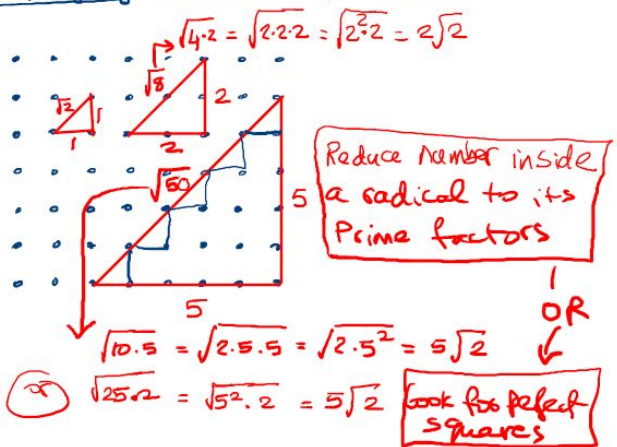 √4·2 = √2·2·2 = √2²·2 = 2√2
√8
√2
1
1
2
2
Reduce number inside
a radical to its
Prime factors
√50
5
5
OR
√10·5 = √2·5·5 = √2·5² = 5√2
or √25·2 = √5²·2 = 5√2
Look for perfect
squares